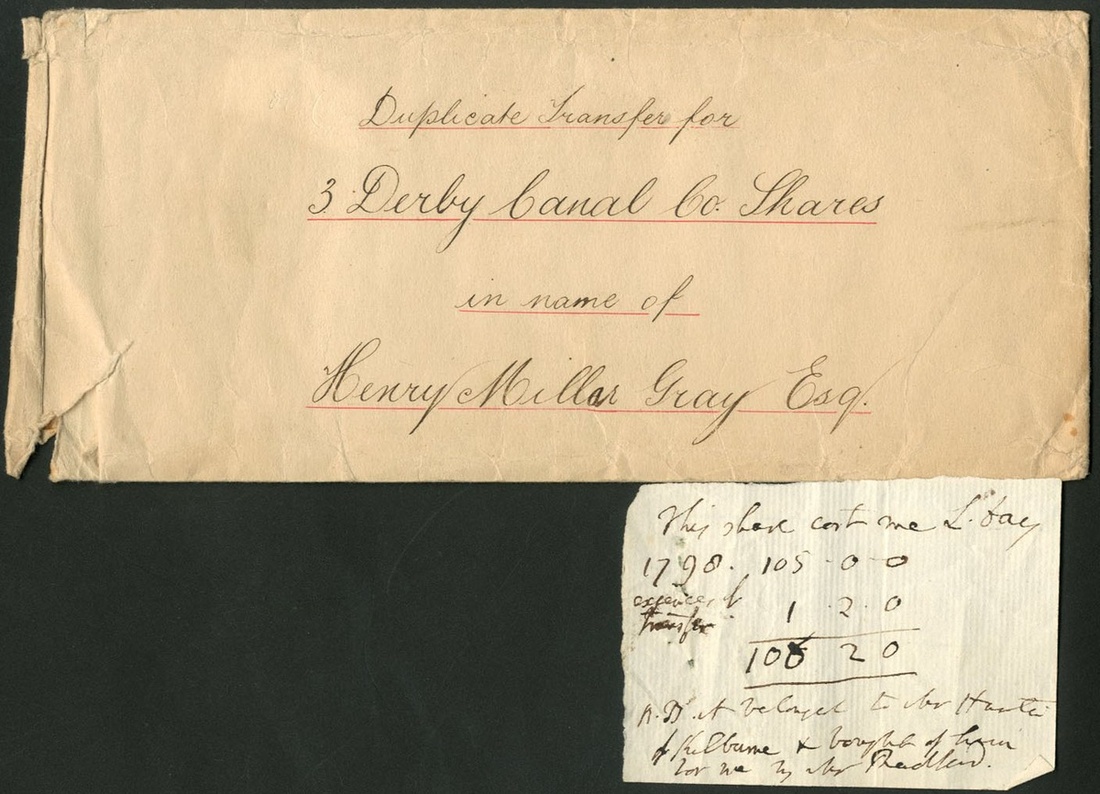 Duplicate Transfer for
3 Derby Canal Co. Shares
in name of
Henry Miller Gray Esq.
This share cost me L. day
1798. 105 - 0 - 0
expences of
transfer 1 . 2 . 0
106 2 0
N.B it belonged to Mr
of Kilburne & bought of him
for me by Mr Radford.